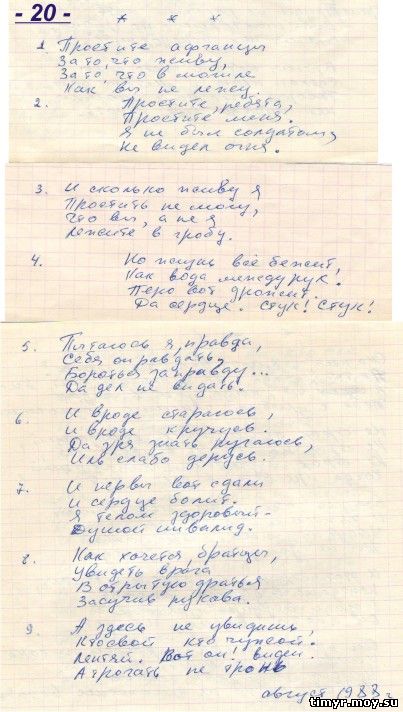 - 20 -
* * *
1. Простите афганцы
За то, что живу,
За то, что в могиле
Как вы не лежу.
2. Простите, ребята,
Простите меня.
Я не был солдатом,
Не видел огня.
3. И сколько живу я
Простить не могу,
Что вы, а не я
Лежите в гробу.
4. Но жизнь всё бежит
Как вода между рук!
Перо вот дрожит.
Да сердце. Стук! Стук!
5. Пытаюсь я, правда,
Себя оправдать,
Бороться за правду...
Да дел не видать.
6. И вроде стараюсь,
И вроде кручусь.
Да зря знать ругаюсь,
Иль слабо дерусь.
7. И нервы вот сдали
И сердце болит.
Я телом здоровый -
Душой инвалид.
8. Как хочется, братцы,
Увидеть врага
В открытую драться
Засучив рукава.
9. А здесь не увидишь,
Кто свой кто чужой.
Лентяй. Вот он! виден.
А трогать не тронь
август 1988 г.
timyr.moy.su